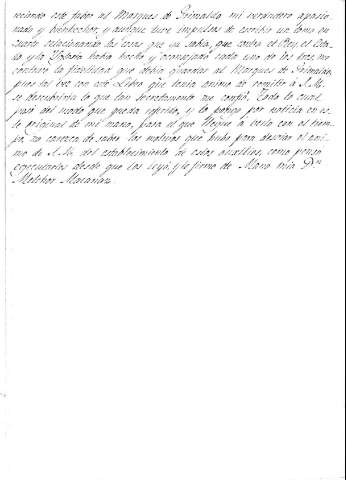 este pudor al Marques de Grimaldo mi verdadero apasio-
nado y bienhechor, y aunque tuve impulsos de escribir un tomo en
quarto relacionando las cosas que yo sabia, que contra el Rey, el Esta-
do y la Iglesia havia hecho y aconsejado cada uno de los tres, me
contuve la fidelidad que debia guardar al Marques de Grimaldo,
pues tal vez con este Libro que tenia animo de remitir a S.M.
se descubriria lo que tan secretamente me confió. Todo lo cual
pasó del modo que queda referido, y lo pongo por noticia en es-
te original de mi mano, para el que llegue a verla con el tiem-
po, no carezca de saber los motivos que hubo para desviar el ani-
mo de S.M. del establecimiento de estos auxilios, como pienso
desde que los dejó, y lo firmo de Mano mia Dn
Melchor Macanaz